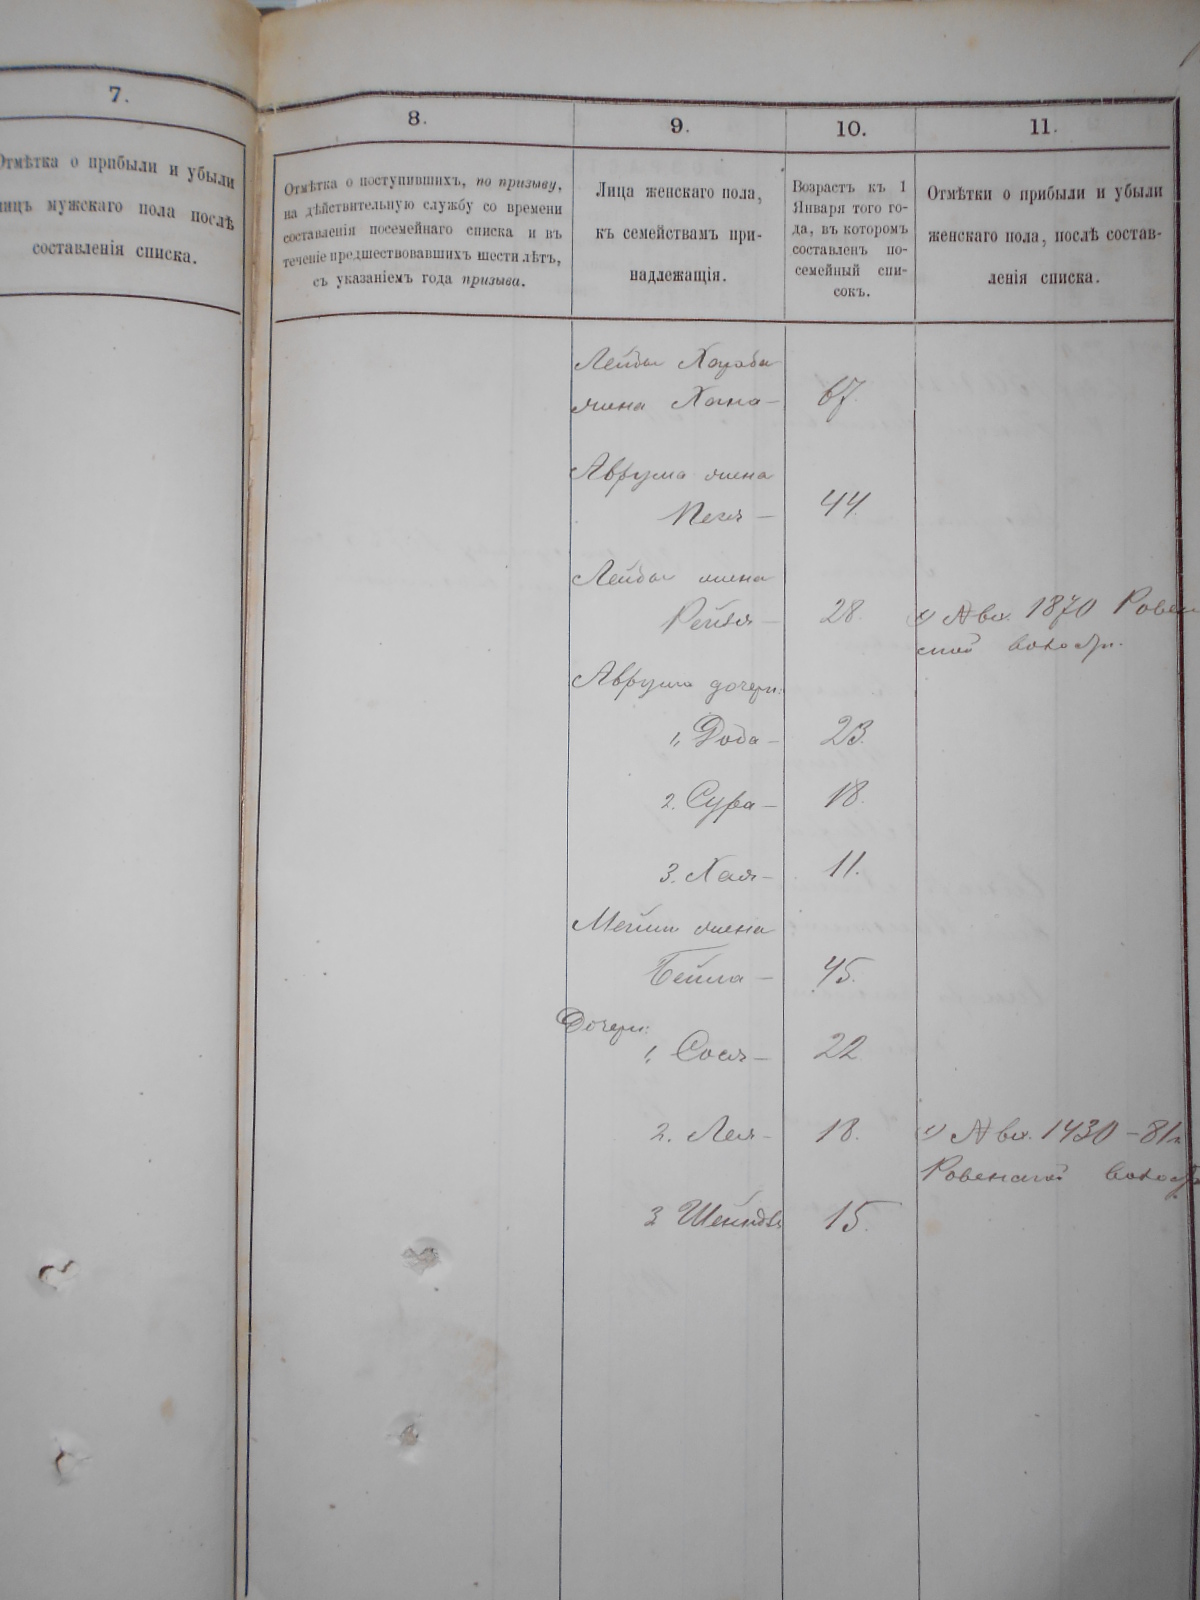 7.
Отмѣтка о прибыли и убыли
лицъ мужскаго пола послѣ
составленія списка.
8.
Отмѣтка о поступившихъ, по призыву,
на дѣйствительную службу со времени
составленія посемейнаго списка и въ
теченіе предшествовавшихъ шести лѣтъ,
съ указаніемъ года призыва.
9.
Лица женскаго пола,
къ семействамъ при-
надлежащія.
10.
Возрастъ къ 1
Января того го-
да, въ которомъ
составленъ по-
семейный спи-
сокъ.
11.
Отмѣтки о прибыли и убыли
женскаго пола, послѣ состав-
ленія списка.
Лейбы
жена Хана — 67.
Аврума жена
Песя — 44.
Лейбы жена
Рейзя — 28.
1) № вх. 1870 Ровен
ской
Аврума дочери:
1, Доба — 23.
2. Сура — 18.
3. Хая — 11.
жена
Бейла — 45.
Дочери:
1, Сося — 22
2. Лея — 18.
1) № вх. 1430 — 81г
Ровенской
3 15.